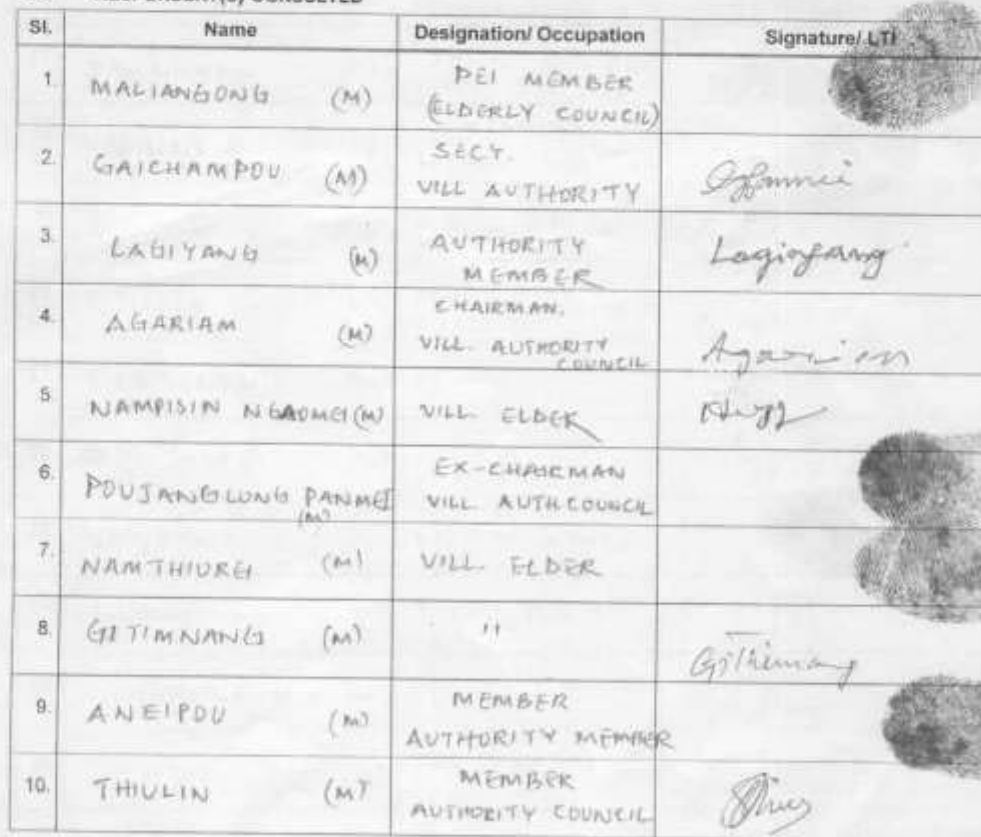 Sl. Name Designation/ Occupation Signature/ LTI
1. MALIANGONG (M) PEI MEMBER
(ELDERLY COUNCIL)
2. GAICHAMPOU (M) SECY.
VILL AUTHORITY
3. LAGIYANG (M) AUTHORITY
MEMBER
4. AGARIAM (M) CHAIRMAN.
VILL. AUTHORITY
COUNCIL
5. NAMPISIN NGAOMEI (M) VILL. ELDER
6. POUJANGLUNG PANMEI
(M) EX-CHAIRMAN
VILL. AUTH COUNCIL
7. NAMTHIUREI (M) VILL. ELDER
8. GITIMNANG (M) "
9. ANEIPOU (M) MEMBER
AUTHORITY MEMBER
10. THIULIN (M) MEMBER
AUTHORITY COUNCIL